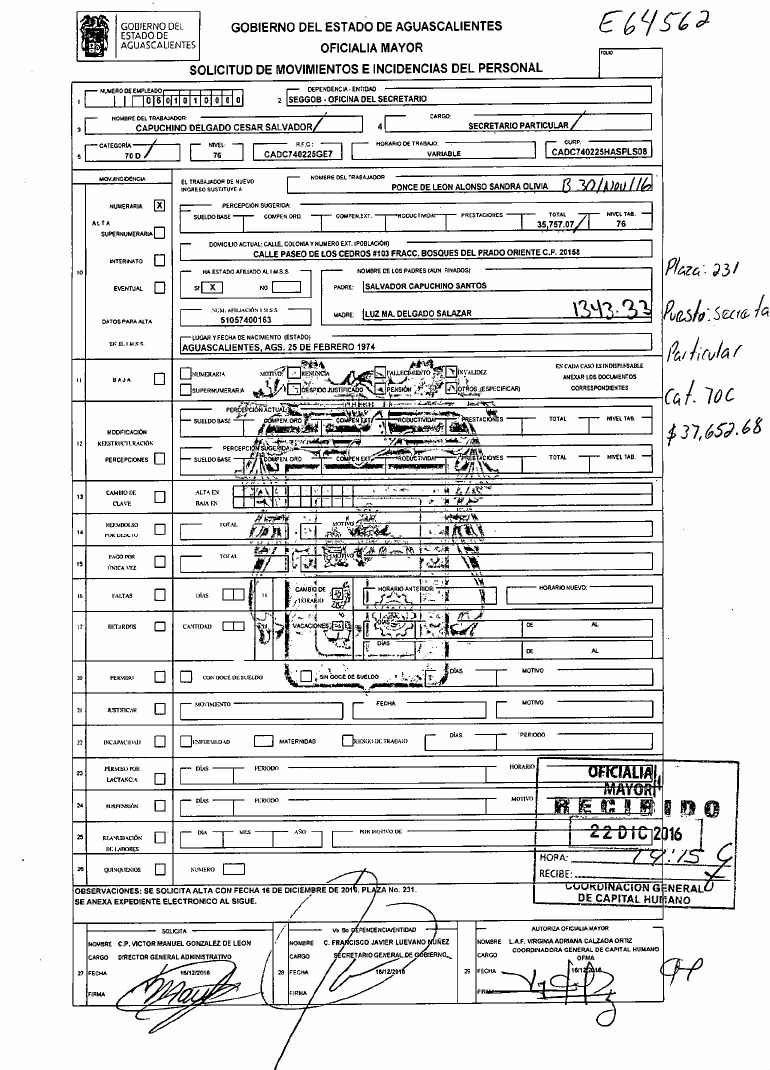 GOBIERNO DEL
ESTADO DE
AGUASCALIENTES
GOBIERNO DEL ESTADO DE AGUASCALIENTES
OFICIALIA MAYOR
SOLICITUD DE MOVIMIENTOS E INCIDENCIAS DEL PERSONAL
E64562
FOLIO
1 NUMERO DE EMPLEADO
2 DEPENDENCIA - ENTIDAD
SEGGOB - OFICINA DEL SECRETARIO
3 NOMBRE DEL TRABAJADOR
CAPUCHINO DELGADO CESAR SALVADOR
4 CARGO:
SECRETARIO PARTICULAR
5 CATEGORÍA NIVEL: R.F.C.: HORARIO DE TRABAJO: CURP.
70 D 76 CADC740225GE7 VARIABLE CADC740225HASPLS08
MOV./INCIDENCIA
EL TRABAJADOR DE NUEVO
INGRESO SUSTITUYE A
NOMBRE DEL TRABAJADOR
PONCE DE LEON ALONSO SANDRA OLIVIA B 30/Nov/16
10
ALTA
NUMERARIA X
SUPERNUMERARIA
INTERINATO
EVENTUAL
DATOS PARA ALTA
EN EL I.M.S.S.
PERCEPCIÓN SUGERIDA:
SUELDO BASE COMPEN ORD. COMPEN.EXT. PRODUCTIVIDAD PRESTACIONES TOTAL NIVEL TAB.
35,757.07 76
DOMICILIO ACTUAL: CALLE, COLONIA Y NUMERO EXT. (POBLACIÓN)
CALLE PASEO DE LOS CEDROS #103 FRACC. BOSQUES DEL PRADO ORIENTE C.P. 20158
HA ESTADO AFILIADO AL I.M.S.S.
SI X NO
NOMBRE DE LOS PADRES (AUN FINADOS)
PADRE: SALVADOR CAPUCHINO SANTOS
NUM. AFILIACIÓN I.M.S.S.
51057400163
MADRE: LUZ MA. DELGADO SALAZAR
1343.33
LUGAR Y FECHA DE NACIMIENTO (ESTADO)
AGUASCALIENTES, AGS. 25 DE FEBRERO 1974
Plaza: 231
Puesto: Secreta
Particular
Cat. 70C
$37,652.68
11 BAJA
NUMERARIA MOTIVO RENUNCIA FALLECIMIENTO INVALIDEZ
SUPERNUMERARIA DESPIDO JUSTIFICADO PENSIÓN OTROS (ESPECIFICAR)
EN CADA CASO ES INDISPENSABLE
ANEXAR LOS DOCUMENTOS
CORRESPONDIENTES
12 MODIFICACIÓN
REESTRUCTURACIÓN
PERCEPCIONES
PERCEPCIÓN ACTUAL:
SUELDO BASE COMPEN. ORD COMPEN EXT PRODUCTIVIDAD PRESTACIONES TOTAL NIVEL TAB.
PERCEPCIÓN SUGERIDA:
SUELDO BASE COMPEN. ORD COMPEN EXT PRODUCTIVIDAD PRESTACIONES TOTAL NIVEL TAB.
13 CAMBIO DE
CLAVE
ALTA EN
BAJA EN
14 REEMBOLSO
POR DESCTO
TOTAL MOTIVO
15 PAGO POR
ÚNICA VEZ
TOTAL MOTIVO
16 FALTAS DÍAS
CAMBIO DE
HORARIO
HORARIO ANTERIOR: HORARIO NUEVO:
17 RETARDOS CANTIDAD
VACACIONES DÍAS DE AL
DÍAS DE AL
20 PERMISO CON GOCE DE SUELDO SIN GOCE DE SUELDO DÍAS MOTIVO
21 JUSTIFICAR MOVIMIENTO FECHA MOTIVO
22 INCAPACIDAD ENFERMEDAD MATERNIDAD RIESGO DE TRABAJO DÍAS PERIODO
23 PERMISO POR
LACTANCIA
DÍAS PERIODO HORARIO
24 SUSPENSIÓN DÍAS PERIODO MOTIVO
25 REANUDACIÓN
DE LABORES
DIA MES AÑO POR MOTIVO DE
26 QUINQUENIOS NUMERO
OFICIALIA
MAYOR
RECIBIDO
22 DIC 2016
HORA: 14:15
RECIBE:
COORDINACION GENERAL
DE CAPITAL HUMANO
OBSERVACIONES: SE SOLICITA ALTA CON FECHA 16 DE DICIEMBRE DE 2016. PLAZA No. 231.
SE ANEXA EXPEDIENTE ELECTRONICO AL SIGUE.
27 SOLICITA
NOMBRE C.P. VICTOR MANUEL GONZALEZ DE LEON
CARGO DIRECTOR GENERAL ADMINISTRATIVO
FECHA 16/12/2016
FIRMA
28 Vo Bo DEPENDENCIA/ENTIDAD
NOMBRE C. FRANCISCO JAVIER LUEVANO NUÑEZ
CARGO SECRETARIO GENERAL DE GOBIERNO
FECHA 16/12/2016
FIRMA
29 AUTORIZA OFICIALIA MAYOR
NOMBRE L.A.F. VIRGINIA ADRIANA CALZADA ORTIZ
CARGO COORDINADORA GENERAL DE CAPITAL HUMANO
OFMA
FECHA 16/12/2016
FIRMA